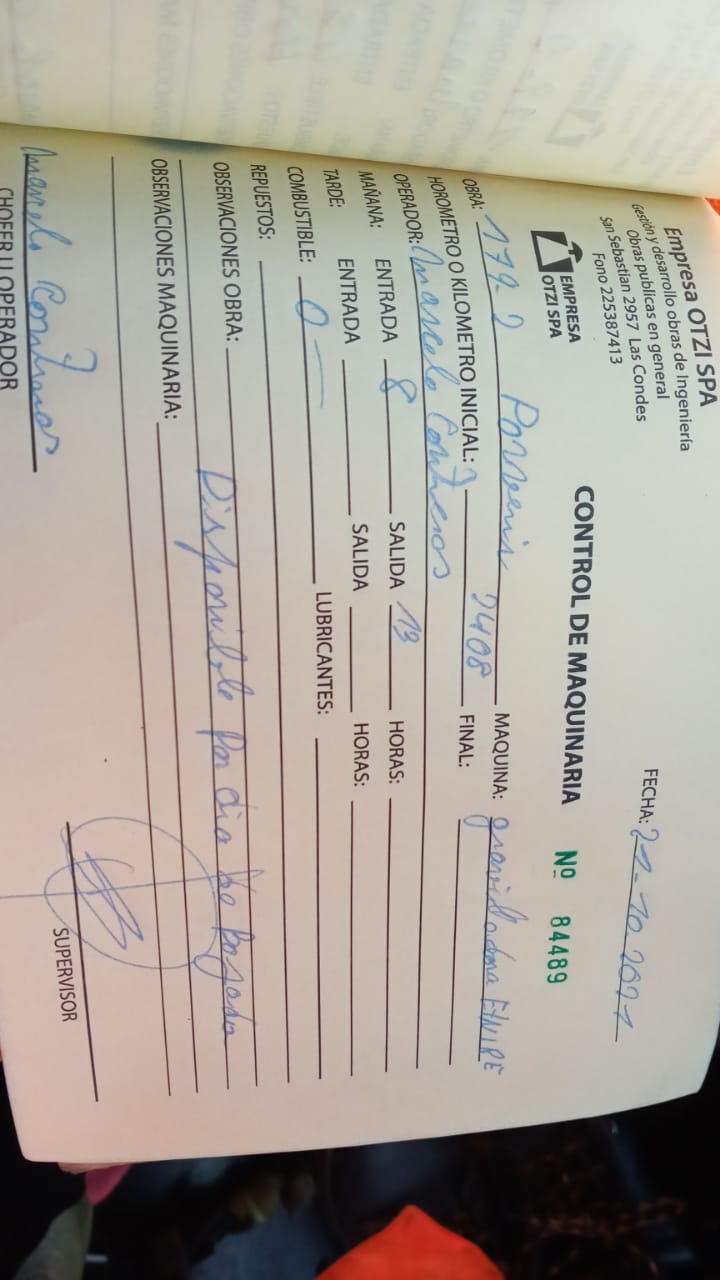 Empresa OTZI SPA
Gestión y desarrollo obras de Ingeniería
Obras publicas en general
San Sebastian 2957 Las Condes
Fono 225387413
FECHA: 21-10-2021
EMPRESA
OTZI SPA
CONTROL DE MAQUINARIA Nº 84489
OBRA: 179-2 Porvenir MAQUINA: gravilladora ETNIRE
HOROMETRO O KILOMETRO INICIAL: 2408 FINAL:
OPERADOR: Marcelo Contreras
MAÑANA: ENTRADA 8 SALIDA 13 HORAS:
TARDE: ENTRADA SALIDA HORAS:
COMBUSTIBLE: 0 LUBRICANTES:
REPUESTOS:
OBSERVACIONES OBRA: Disponible por dia de
OBSERVACIONES MAQUINARIA:
Marcelo Contreras
CHOFER U OPERADOR
SUPERVISOR